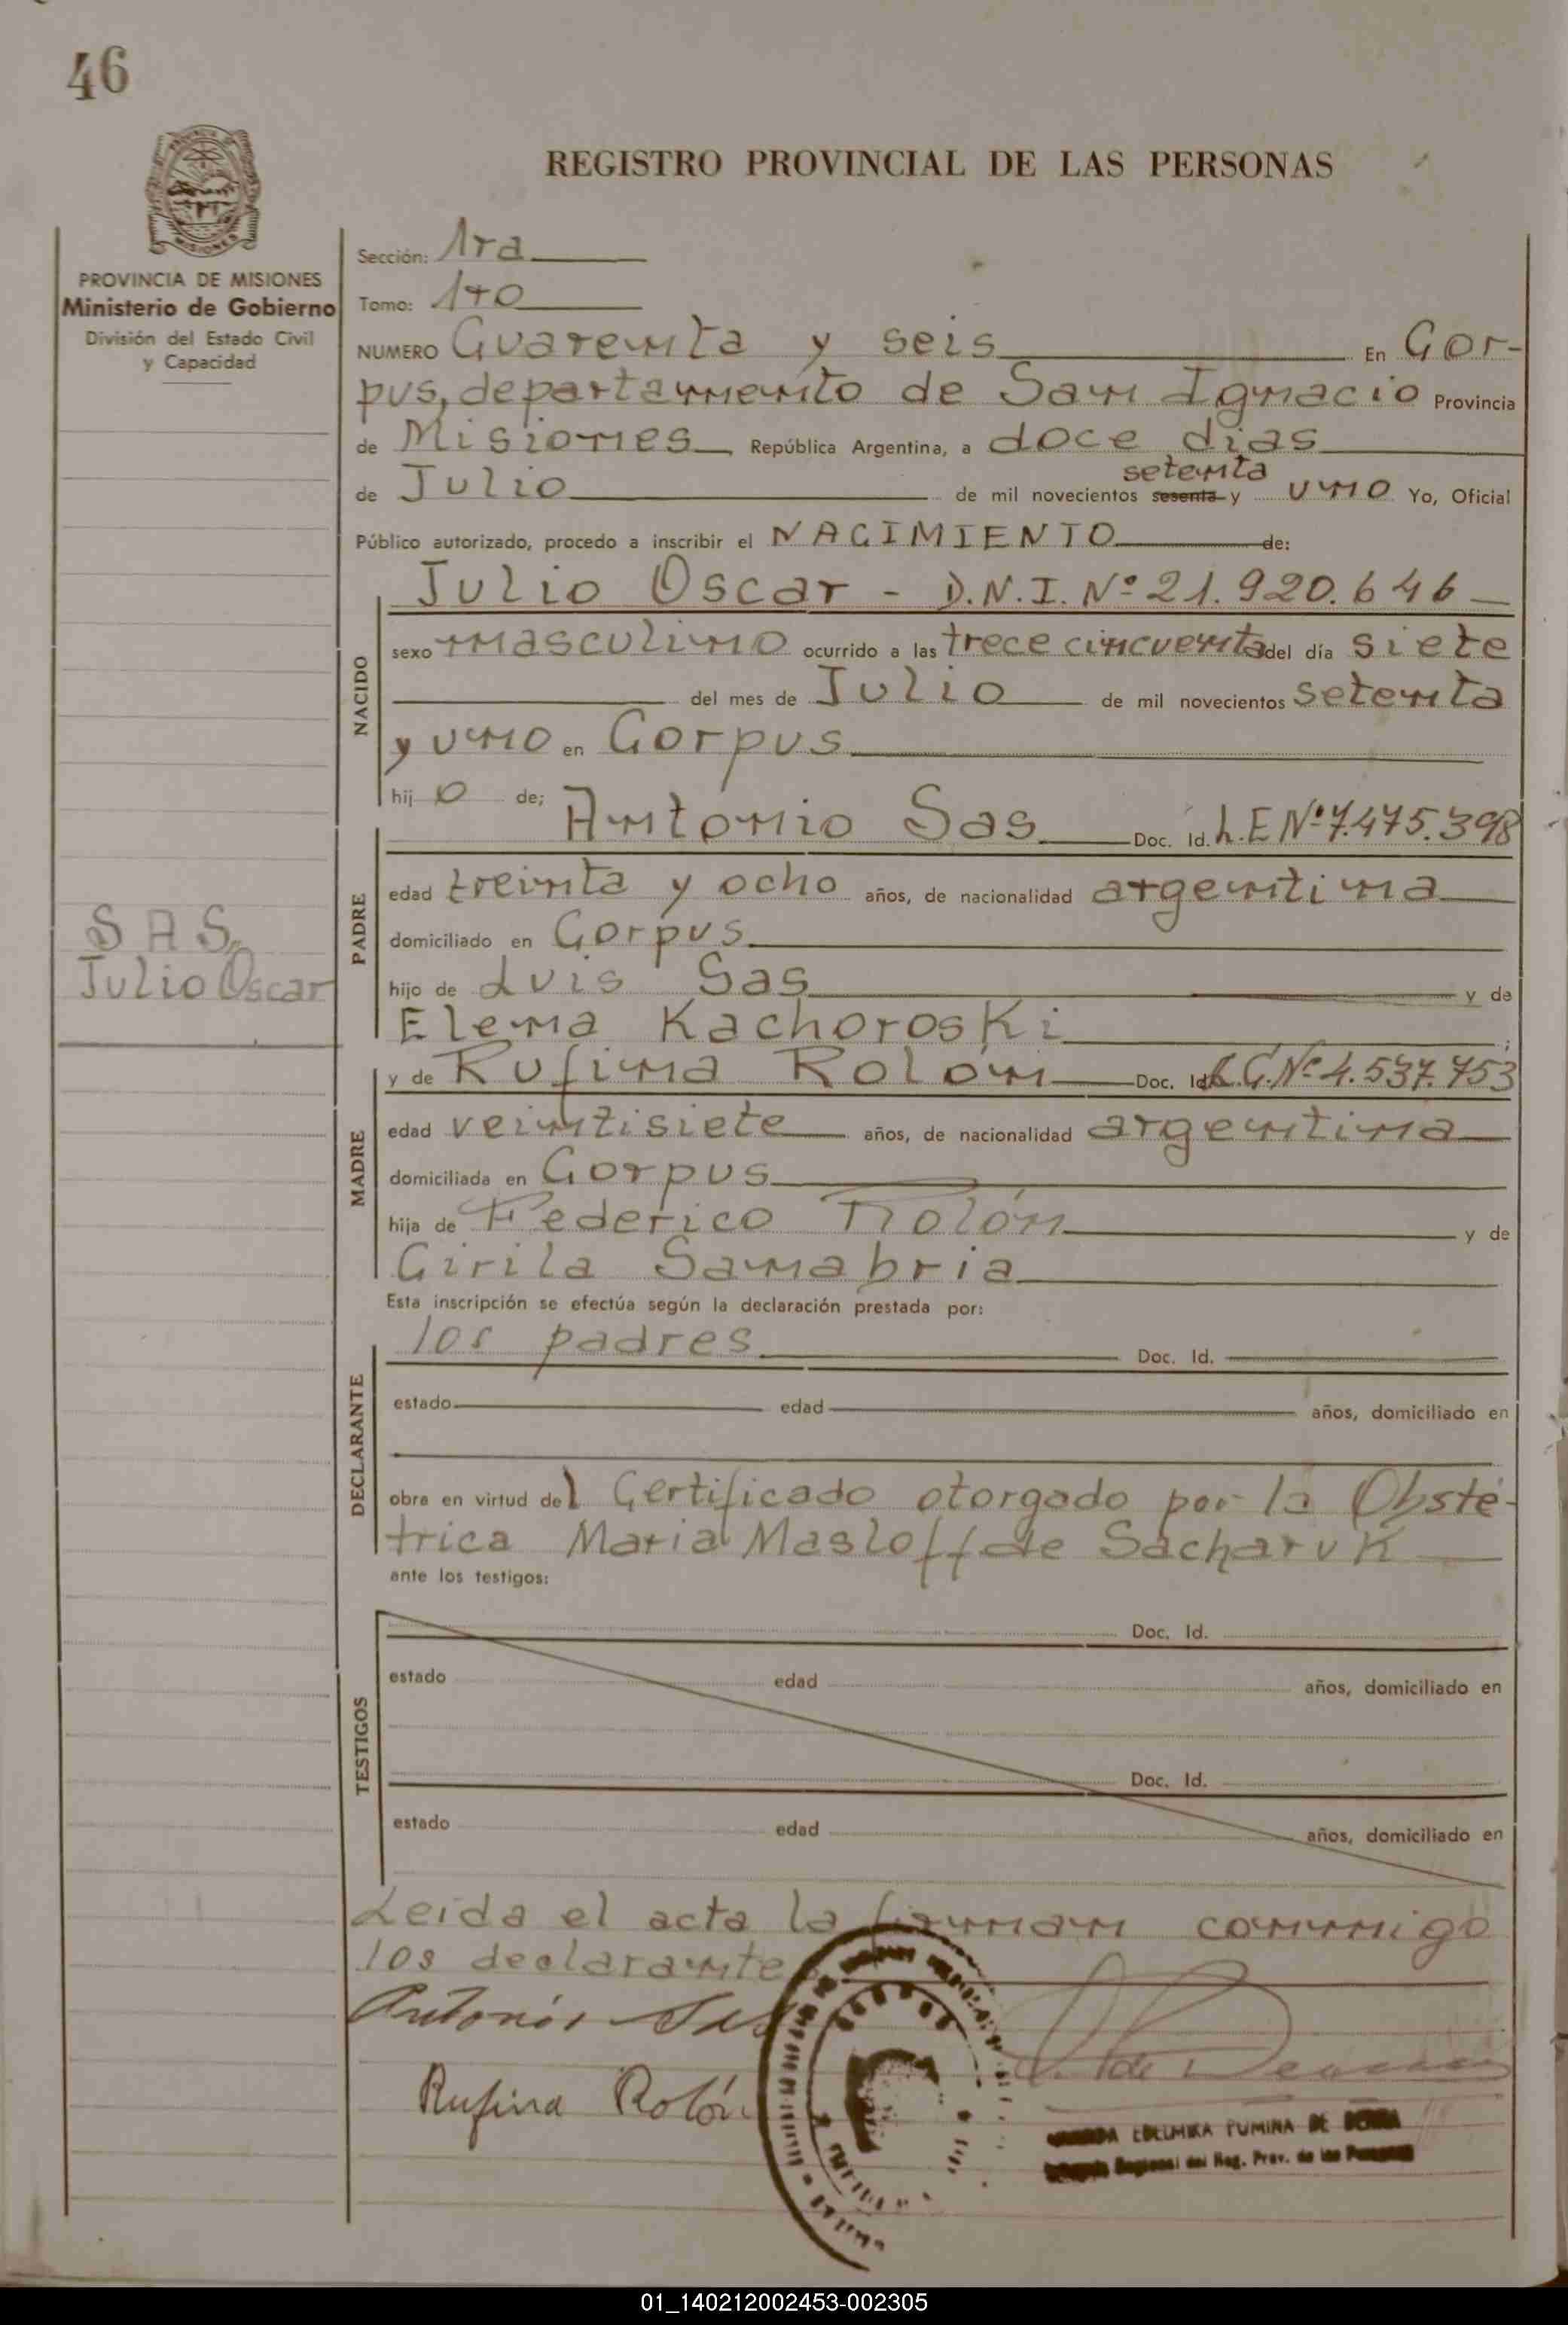 46
REGISTRO PROVINCIAL DE LAS PERSONAS
MISIONES
PROVINCIA DE MISIONES
Ministerio de Gobierno
División del Estado Civil
y Capacidad
Sección: 1ra
Tomo: 1ro
NUMERO Cuarenta y seis En Cor-
pus, departamento de San Ignacio Provincia
de Misiones República Argentina, a doce dias
setenta
de Julio de mil novecientos sesenta y uno Yo, Oficial
Público autorizado, procedo a inscribir el NACIMIENTO de:
NACIDO
Julio Oscar - D.N.I. Nº 21.920.646
sexo masculino ocurrido a las trece cincuenta del día siete
del mes de Julio de mil novecientos setenta
y uno en Corpus
hijo de;
PADRE
Antonio Sas Doc. Id. L.E Nº 7.475.398
edad treinta y ocho años, de nacionalidad argentina
domiciliado en Corpus
hijo de Luis Sas y de
Elena Kachoroski ;
SAS,
Julio Oscar
MADRE
y de Rufina Rolón Doc. Id. L.C. Nº 4.537.753
edad veintisiete años, de nacionalidad argentina
domiciliada en Corpus
hija de Federico Rolón y de
Cirila Sanabria
Esta inscripción se efectúa según la declaración prestada por:
DECLARANTE
los padres Doc. Id.
estado edad años, domiciliado en
obra en virtud del Certificado otorgado por la Obsté-
trica Maria Masloff de Sacharuk
ante los testigos:
TESTIGOS
Doc. Id.
estado edad años, domiciliado en
Doc. Id.
estado edad años, domiciliado en
Leida el acta la firman conmigo
los declarantes
Antonio Sas
Rufina Rolón
DE
Reg. Prov. de las
01_140212002453-002305